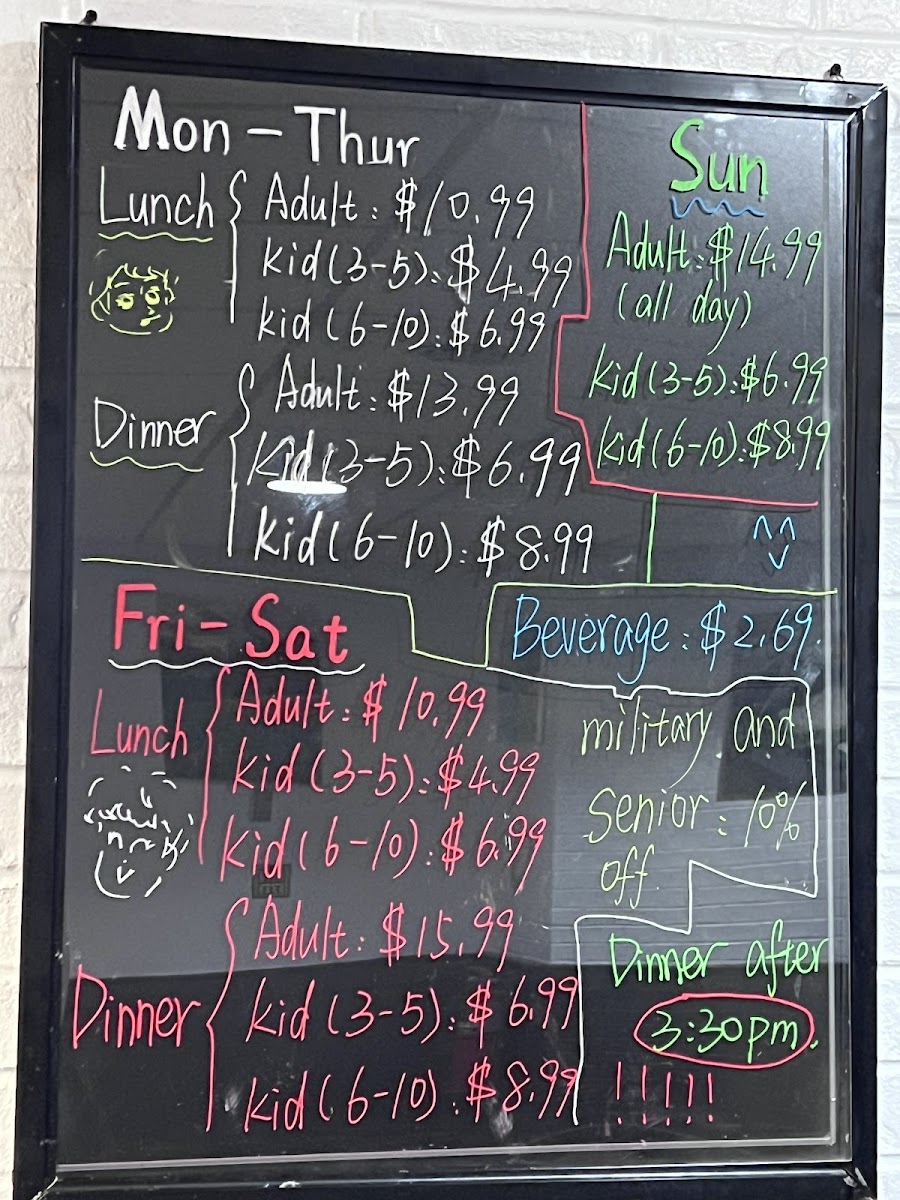 Mon - Thur
Lunch
Adult: $10.99
kid(3-5): $4.99
kid(6-10): $6.99
Dinner
Adult: $13.99
Kid(3-5): $6.99
kid(6-10): $8.99
Sun
Adult: $14.99
(all day)
kid(3-5): $6.99
kid(6-10): $8.99
Beverage: $2.69.
Fri - Sat
Lunch
Adult: $10.99
kid(3-5): $4.99
kid(6-10): $6.99
Dinner
Adult: $15.99
kid(3-5): $6.99
kid(6-10): $8.99
military and
senior: 10%
off
Dinner after
3:30pm.
!!!!!